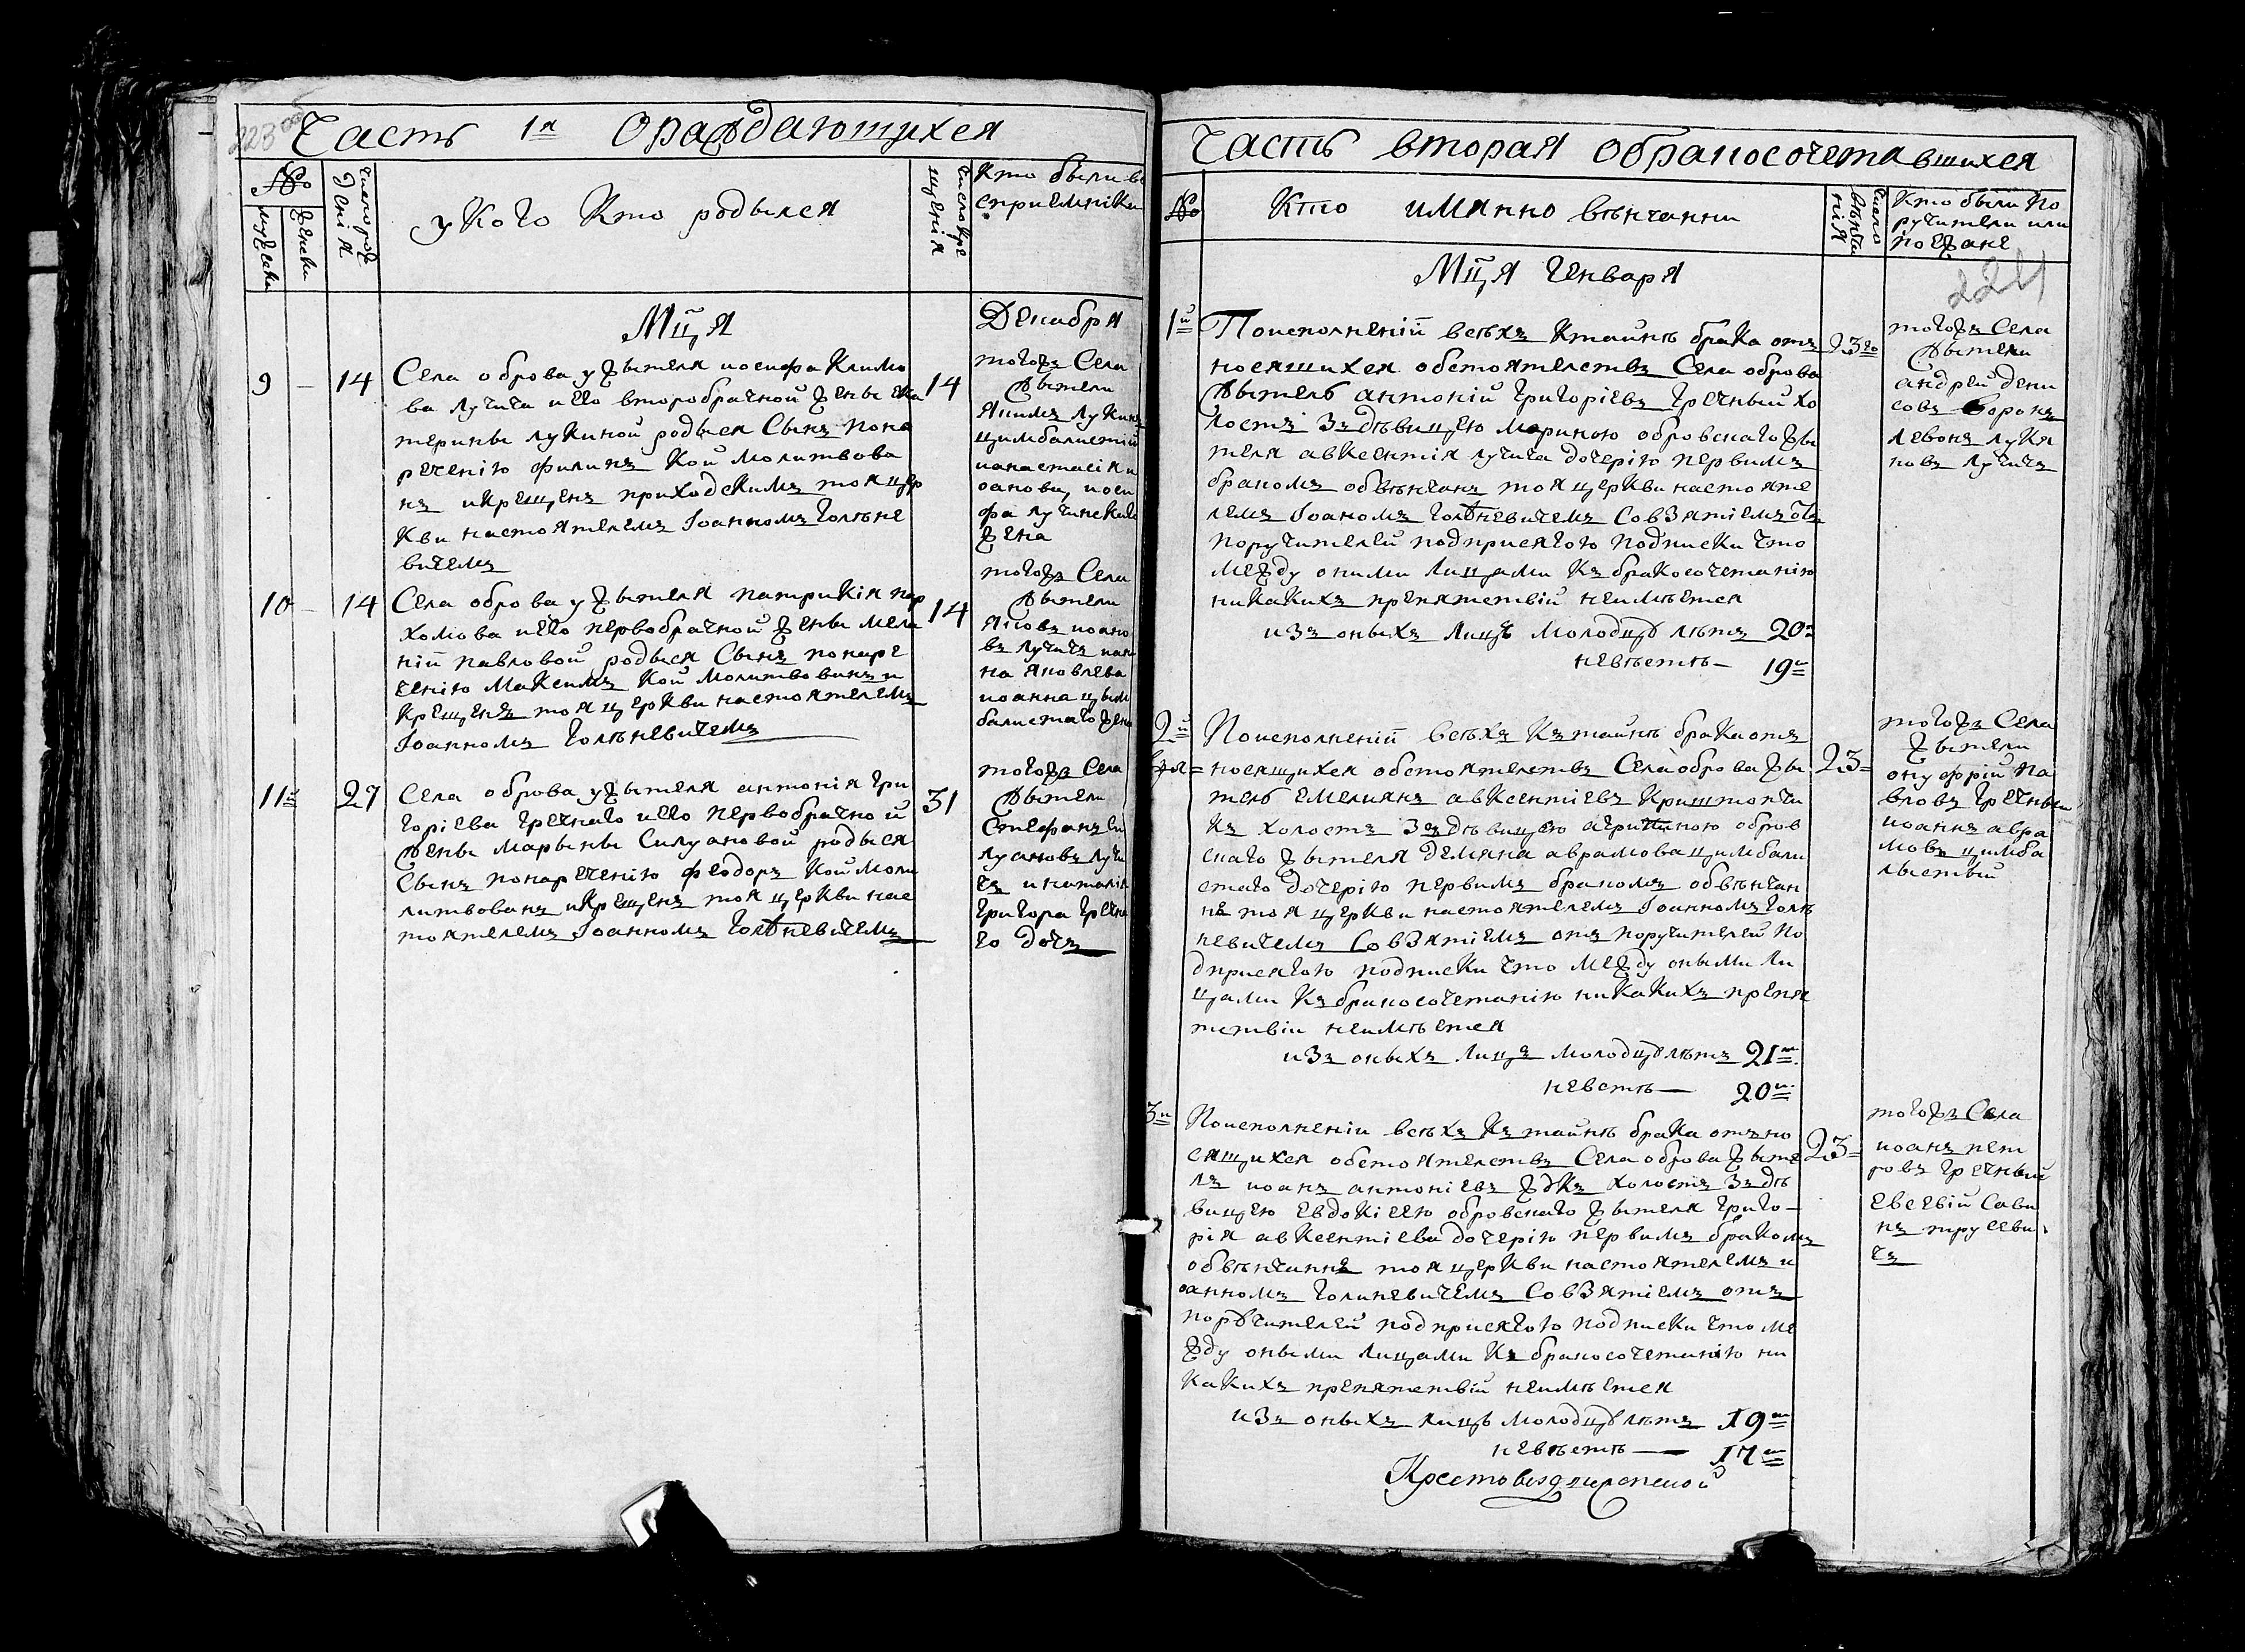 223 об
Часть 1я Ораждающихся
№
мужеска
женска
число рождения
У кого кто родылся
число крещения
кто были восприемники
Мца Декабря
9 — 14
Села оброва ужытеля иосифа климо
ва лучича иего второбрачной жены ека
терины лукиной родыся Сынъ по на
речению филипъ Кой молитвова
нъ икрещенъ приходскимъ тоя цер
кви настоятелемъ Іоанномъ Голѣне
вичемъ
14
тогожъ Села
жытели
якимъ лукинъ
цимбалистій
ианастасія и
оанова, иоси
фа лучинскаго
жена
10 — 14
Села оброва ужытеля патрикія пар
хомова иего первобрачной жены мела
ніи павловой родыся Сынъ по наре
ченію Максимъ Кой молитвованъ и
крещенъ тоя церкви настоятелемъ
Іоанномъ Голѣневичемъ
14
тогожъ Села
жытели
яковъ иоано
въ лучичъ иан
на яковлева
иоанна цым
балистаго жена
11й 27
Села оброва ужытеля антонія гри
горіева гречнаго иего первобрачной
жены марыны Силуановой родыся
Сынъ понареченію феодоръ Кой моли
литвованъ икрещенъ тоя церкви нас
тоятелемъ Іоанномъ Голѣневичемъ
31
тогожъ Села
жытели
Стефанъ Си
луановъ лучи
чъ инаталія
григора гречна
го дочь
Часть вторая обракосочетавшихся
№
Кто имянно вѣнчанни
число вѣнчанія
Кто были по
ручители или
поежане
224
Мца Генваря
1й
Поисполненіи всѣхъ Ктайнѣ брака отъ
носящихся обстоятелствъ Села оброва
жытель антоній григоріевъ гречный хо
лостъ Зъ дѣвицею мариною обровскаго жы
теля авксентія лучича дочерію первимъ
бракомъ обвѣнчанъ тоя церкви настояте
лемъ Іоаномъ Голѣневичемъ Со взятіемъ отъ
поручителей подприсягою подписки что
между оними лицами Къ бракосочетанію
никакихъ препятствій неимѣется
изъ оныхъ лицъ молодцу лѣтъ 20ъ
невѣстѣ — 19ъ
23го
тогожъ Села
жытели
андрей дени
совъ воронъ
левонъ лукя
новъ лучичъ
2й
Поисполненіи всѣхъ Къ тайнѣ брака отъ
носящихся обстоятелствъ Села оброва жы
тель емелиянъ авксентіевъ Криштопчи
къ холостъ Зъ дѣвицею агрипиною обров
скаго жытеля демяна аврамова цимбали
стаго дочерію первимъ бракомъ обвѣнчан
не тоя церкви настоятелемъ Іоанномъ Голѣ
невичемъ Со взятіемъ отъ поручителей по
дприсягою подписки что между оными ли
цами Къ бракосочетанію никакихъ препя
тствіи неимѣется
изъ оныхъ лицъ молодцу лѣтъ 21ъ
невстѣ — 20ъ
23
тогожъ Села
жытели
онуфрій па
вловъ гречный
иоанъ авра
мовъ цимба
лыстый
3й
Поисполненіи всѣхъ Къ тайнѣ брака отъ но
сящихся обстоятелствъ Села оброва жыте
лъ иоанъ антоніевъ ждкъ холостъ Зъ дѣ
вицею Евдокіею обровскаго жытеля григо
рія авксентіева дочерію первимъ бракомъ
обвѣнчанне тоя церкви настоятелемъ и
оанномъ Голиневичемъ Со взятіемъ отъ
поручителей подприсягою подписки что ме
жду оными лицами Къ бракосочетанію ни
какихъ препятствій неимѣется
изъ оныхъ лицъ молодцу лѣтъ 19ъ
невѣстѣ — 17ъ
23
тогожъ Села
иоанъ пет
ровъ гречный
Евсевій Сави
нъ трусеви
чъ